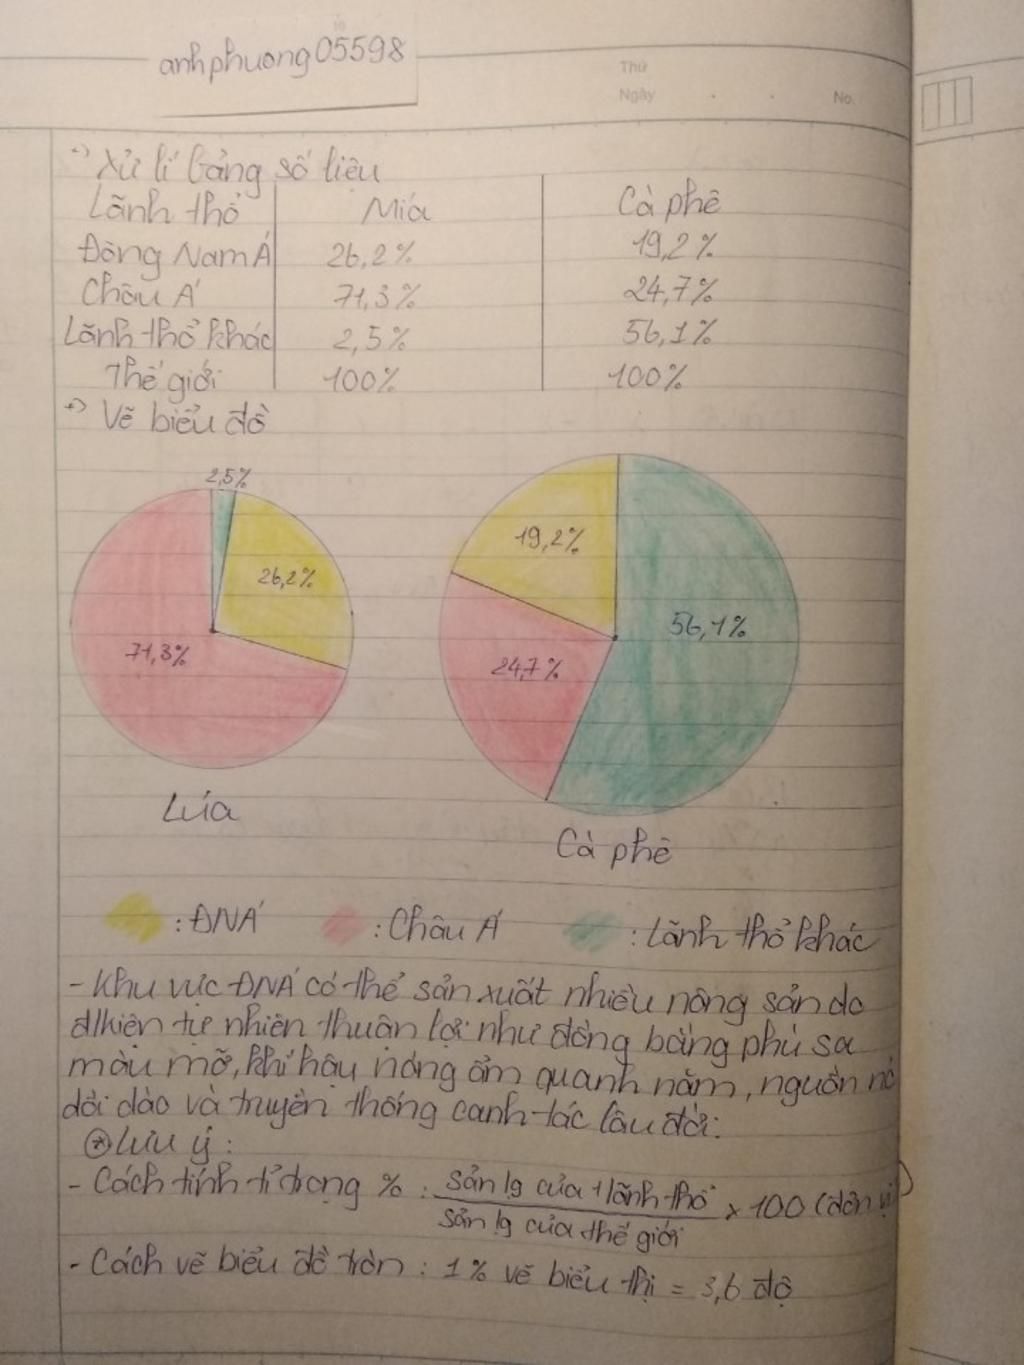 anhphuong05598
Thứ
Ngày . . No.
+) Xử lí bảng số liệu
Lãnh thổ Mía Cà phê
Đông Nam Á 26,2% 19,2%
Châu Á 71,3% 24,7%
Lãnh thổ khác 2,5% 56,1%
Thế giới 100% 100%
+) Vẽ biểu đồ
2,5%
26,2%
71,3%
19,2%
56,1%
24,7%
Lúa
Cà phê
: ĐNÁ : Châu Á : Lãnh thổ khác
- Khu vực ĐNÁ có thể sản xuất nhiều nông sản do
đ/kiện tự nhiên thuận lợi như đồng bằng phù sa
màu mỡ, khí hậu nóng ẩm quanh năm, nguồn nc
dồi dào và truyền thống canh tác lâu đời.
⊛ Lưu ý :
- Cách tính tỉ trọng % : sản lg của 1 lãnh thổ × 100 (đơn vị
sản lg của thế giới
- Cách vẽ biểu đồ tròn : 1% vẽ biểu thị = 3,6 độ